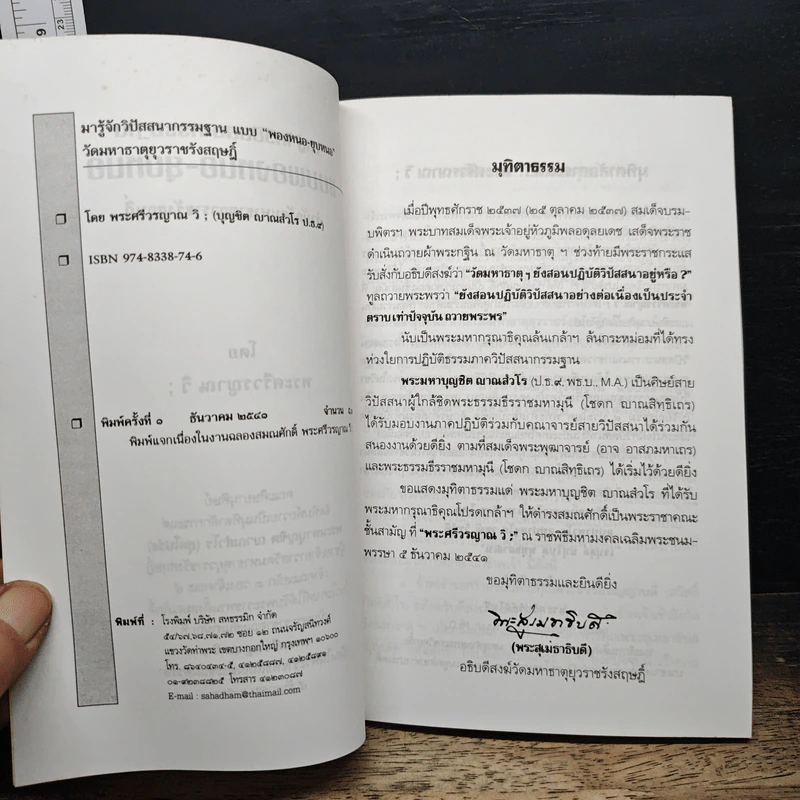 มารู้จักวิปัสสนากรรมฐาน แบบ "พองหนอ-ยุบหนอ"
วัดมหาธาตุยุวราชรังสฤษฎิ์
โดย พระศรีวรญาณ วิ ; (บุญชิต ญาณสํวโร ป.ธ.๙)
ISBN 974-8338-74-6
พิมพ์ครั้งที่ ๑ ธันวาคม ๒๕๔๑ จำนวน
พิมพ์แจกเนื่องในงานฉลองสมณศักดิ์ พระศรีวรญาณ
พิมพ์ที่ : โรงพิมพ์ บริษัท สหธรรมิก จำกัด
๕๔/๖๗,๖๘,๗๑,๗๒ ซอย ๑๒ ถนนจรัญสนิทวงศ์
แขวงวัดท่าพระ เขตบางกอกใหญ่ กรุงเทพฯ ๑๐๖๐๐
โทร. ๘๖๔๐๔๓๔-๕, ๔๑๒๕๘๘๗, ๔๑๒๕๘๙๑
๐๑-๙๒๓๘๘๒๕ โทรสาร ๔๑๒๓๐๘๗
E-mail : sahadham@thaimail.com
มุทิตาธรรม
เมื่อปีพุทธศักราช ๒๕๓๗ (๒๕ ตุลาคม ๒๕๓๗) สมเด็จบรม-
บพิตรฯ พระบาทสมเด็จพระเจ้าอยู่หัวภูมิพลอดุลยเดช เสด็จพระราช
ดำเนินถวายผ้าพระกฐิน ณ วัดมหาธาตุ ฯ ช่วงท้ายมีพระราชกระแส
รับสั่งกับอธิบดีสงฆ์ว่า "วัดมหาธาตุ ฯ ยังสอนปฏิบัติวิปัสสนาอยู่หรือ ?"
ทูลถวายพระพรว่า "ยังสอนปฏิบัติวิปัสสนาอย่างต่อเนื่องเป็นประจำ
ตราบเท่าปัจจุบัน ถวายพระพร"
นับเป็นพระมหากรุณาธิคุณล้นเกล้าฯ ล้นกระหม่อมที่ได้ทรง
ห่วงใยการปฏิบัติธรรมภาควิปัสสนากรรมฐาน
พระมหาบุญชิต ญาณสํวโร (ป.ธ.๙, พธ.บ., M.A.) เป็นศิษย์สาย
วิปัสสนาผู้ใกล้ชิดพระธรรมธีรราชมหามุนี (โชดก ญาณสิทฺธิเถร)
ได้รับมอบงานภาคปฏิบัติร่วมกับคณาจารย์สายวิปัสสนาได้ร่วมกัน
สนองงานด้วยดียิ่ง ตามที่สมเด็จพระพุฒาจารย์ (อาจ อาสภมหาเถร)
และพระธรรมธีรราชมหามุนี (โชดก ญาณสิทฺธิเถร) ได้เริ่มไว้ด้วยดียิ่ง
ขอแสดงมุทิตาธรรมแด่ พระมหาบุญชิต ญาณสํวโร ที่ได้รับ
พระมหากรุณาธิคุณโปรดเกล้าฯ ให้ดำรงสมณศักดิ์เป็นพระราชาคณะ
ชั้นสามัญ ที่ "พระศรีวรญาณ วิ ;" ณ ราชพิธีมหามงคลเฉลิมพระชนม-
พรรษา ๕ ธันวาคม ๒๕๔๑
ขอมุทิตาธรรมและยินดียิ่ง
พระสุเมธาธิบดี
(พระสุเมธาธิบดี)
อธิบดีสงฆ์วัดมหาธาตุยุวราชรังสฤษฎิ์